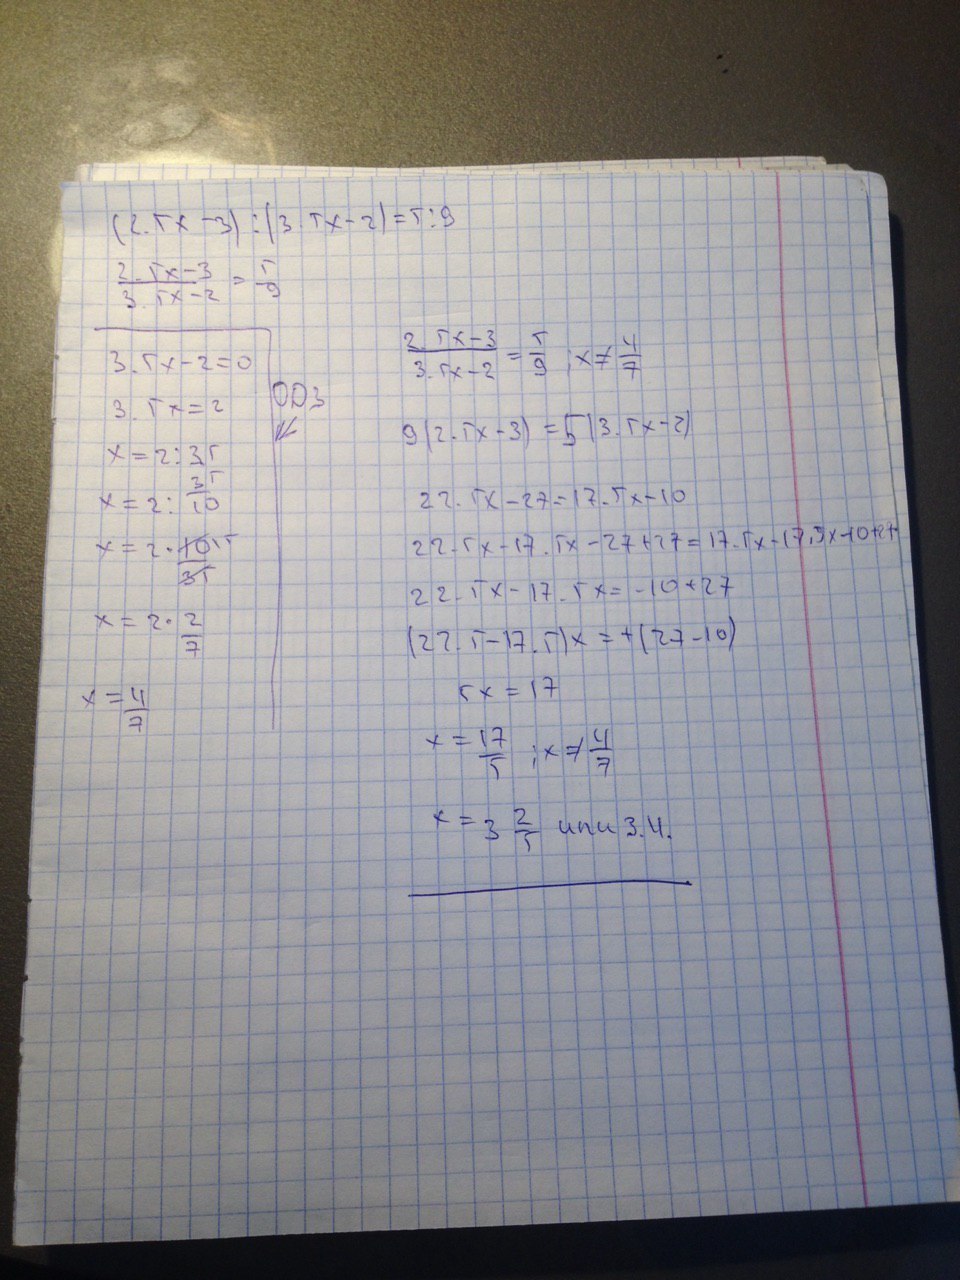 (2.5x-3):(3.5x-2)=5:9
\frac{2.5x-3}{3.5x-2}=\frac{5}{9}
3.5x-2=0
3.5x=2
x=2:3,5
x=2:\frac{35}{10}
x=2·\frac{10}{35}
x=2·\frac{2}{7}
x=\frac{4}{7}
ОДЗ
\frac{2.5x-3}{3.5x-2}=\frac{5}{9};x≠\frac{4}{7}
9(2.5x-3)=5(3.5x-2)
22.5x-27=17.5x-10
22.5x-17.5x-27+27=17.5x-17,5x-10+27
22.5x-17.5x=-10+27
(22.5-17.5)x=+(27-10)
5x=17
x=\frac{17}{5};x≠\frac{4}{7}
x=3\frac{2}{5} или 3.4.